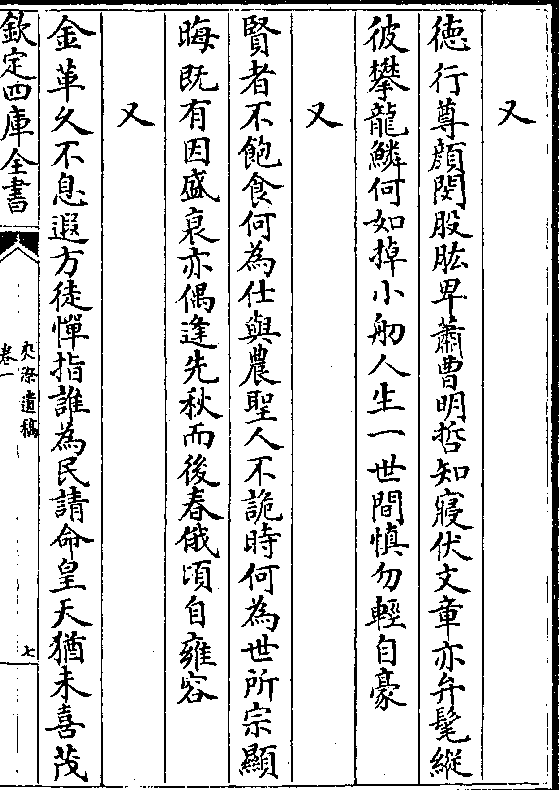 又
徳行尊顔閔股肱卑蕭曹明哲知寢伏文章亦弁髦縱
彼攀龍鱗何如掉小舠人生一世間慎勿輕自豪
又
賢者不飽食何為仕與農聖人不詭時何為世所宗顯
晦既有因盛衰亦偶逢先秋而後春俄頃自雍容
又
金革久不息遐方徒憚指誰為民請命皇天猶未喜茂
欽定四庫全書
夾漈遺稿
卷一
七